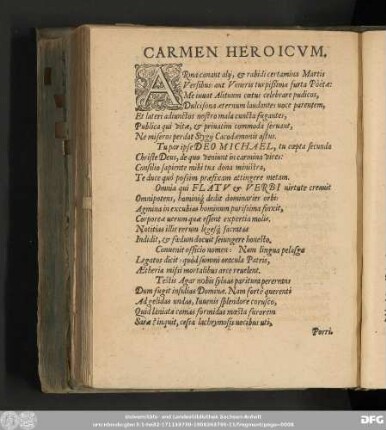 CARMEN HEROICVM.
ARma canant alij, & rabidi certamina Martis
Versibus aut Veneris turpissima furta Poëtæ:
Me iuuat Aldonni cœtus celebrare pudicos,
Dulcisona æternum laudantes voce parentem,
Et lateri adiunctos nostro mala cuncta fugantes,
Publica qui vitæ, & priuatim commoda seruant,
Ne miseros perdat Stygij Cacodæmonis astus.
Tu par ipse DEO MICHAEL, tu cœpta secunda
Christe Deus, de quo veniunt in carmina vires:
Consilio sapiente mihi tua dona ministra,
Te duce quò possim præfixam attingere metam.
Omnia qui FLATV & VERBI virtute creauit
Omnipotens, hominiq́; dedit dominarier orbi:
Agmina in excubias hominum purissima fecit,
Corporea uerum quæ essent expertia molis.
Notitias illic rerum legesq́; sacratas
Indidit, & fœdum docuit seiungere honesto,
Conuenit officio nomen: Nam lingua pelasga
Legatos dicit: quòd summi oracula Patris,
Ætheria missi mortalibus arce reuelent.
Testis Agar nobis sobias paritura perennes
Dum fugit insidias Dominæ. Nam fortè querenti
Ad gelidas undas, Iuuenis splendore corusco,
Quid laniata comas formidas mœsta furorem
Saræ? inquit, cessa lachrymosis uocibus uti,
Porrò
Universitäts- und Landesbibliothek Sachsen-Anhalt
DFG